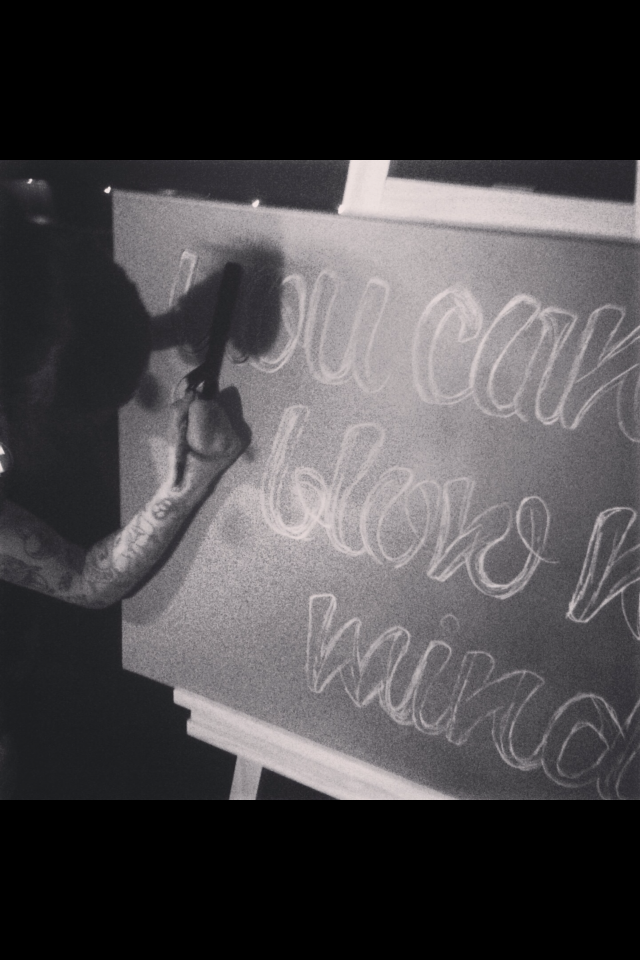 you can
blow
mind